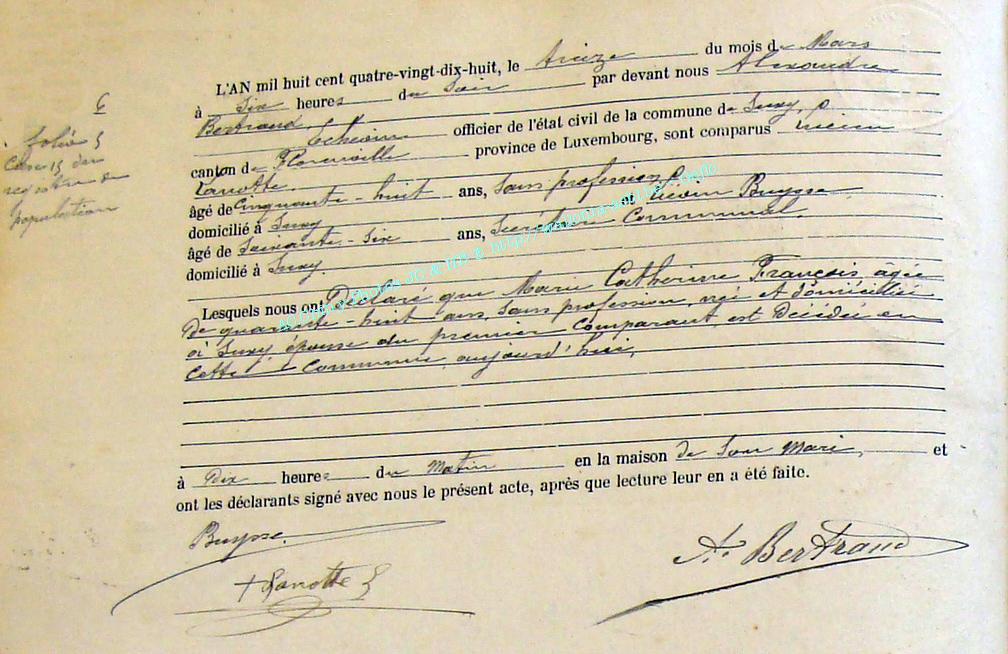 6
folio 5
Case 15 du
registre de
population
L'AN mil huit cent quatre-vingt-dix-huit, le treize du mois de Mars
à Six heures du Soir par devant nous Alexandre
Bertrand, Echevin officier de l'état civil de la commune de Suxy,
canton de Florenville province de Luxembourg, sont comparus
Lanotte
âgé de Cinquante-huit ans, Sans profession
domicilié à Suxy et Buysse
âgé de Soixante-Six ans, Secrétaire Communal
domicilié à Suxy.
Lesquels nous ont Déclaré que Marie Catherine François, âgée
de quarante-huit ans, Sans profession, née et domiciliée
à Suxy, épouse du premier Comparant, est décédée en
cette Commune, aujourd'hui,
à Dix heures du Matin en la maison de Son Mari, et
ont les déclarants signé avec nous le présent acte, après que lecture leur en a été faite.
Buysse
Lanotte
Bertrand